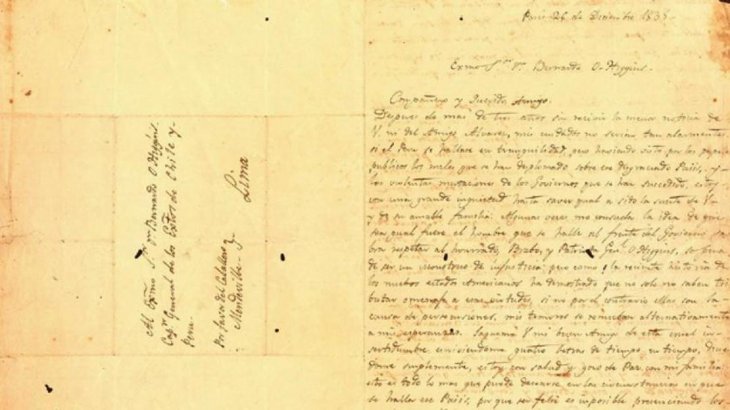 Al Exmo Sr Dn Bernardo O Higgins
Capn General de los Extos de Chile y
Peru
Por favor del Caballero
Mendeville y
Lima
Paris 26 de Diciembre 183
Exmo Sr Dn Bernardo O-Higgins.
Compañero y Querido Amigo.
Despues de mas de tres años sin recivir la menor noticia de
V. ni del Amigo Alvarez, mis cuidados no serian tan alarmantes
si el Peru se hallase en tranquilidad, pero haviendo visto por los pape
publicos los males que se han desplomado sobre ese desgraciado Pais, y
los violentas mutaciones de los Goviernos que se han sucedido, estoy
con una grande inquietud hasta saver qual a sido la suerte de V-
y de su amable familia: Algunas veces me consuela la idea de que
sea qual fuere el hombre que se halle al frente del Govierno sa
bra respetar al honrrado, Brabo, y Patriota Genl O-Higgins, so pena
de ser un monstruo de injusticia; pero como la reciente historia de
los nuebos estados Americanos ha demostrado que no solo no saben tri
butar omenaje a esas virtudes, si no por el contrario ellas son la
causa de persecuciones, mis temores se remueban alternativamente
a mis esperanzas. Saqueme V mi buen Amigo de esta cruel in
sertidumbre escriviendome quatro letras de tiempo en tiempo, dicien
dome simplemente, estoy con salud y gozo de Paz con mi familia
esto es todo lo mas que puede desearse en las circunstancias en que
se halla ese Pais, por que ser feliz es imposible presenciando los